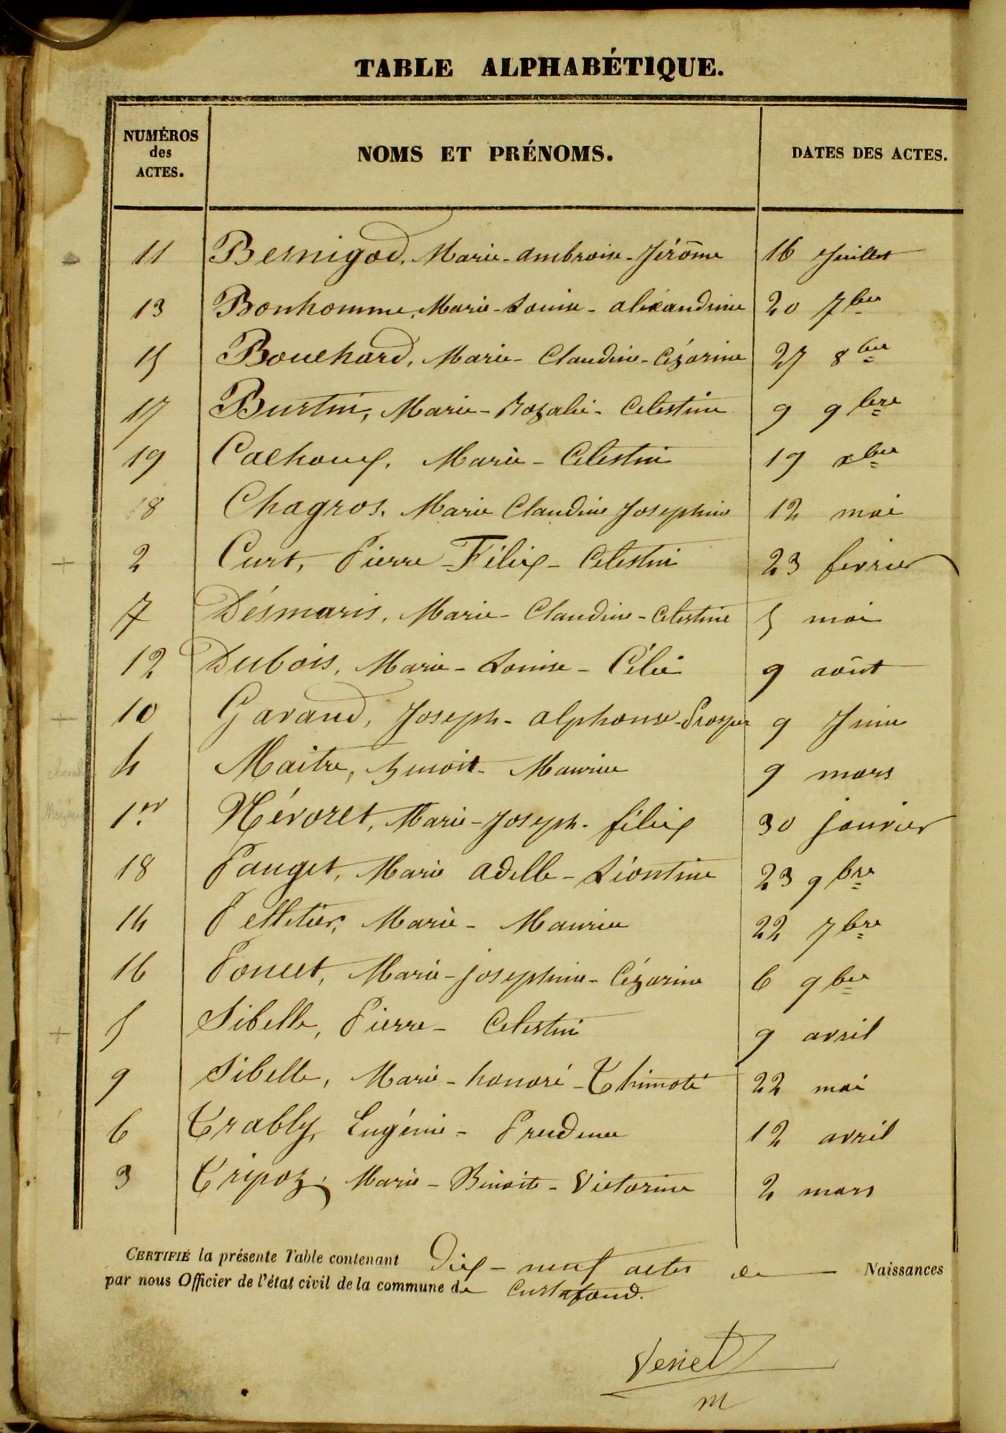 TABLE ALPHABÉTIQUE.
NUMÉROS des ACTES. NOMS ET PRÉNOMS. DATES DES ACTES.
11 Bernigod, Marie-ambroise-Jérôme 16 Juillet
13 Bonhomme, Marie-Louise-alexandrine 20 7bre
15 Bouchard, Marie-Claudine-Cézarine 27 8bre
17 Burtin, Marie-Rozalie-Celestine 9 9bre
19 Cachoux, Marie-Celestin 19 xbre
8 Chagros, Marie Claudine Josephine 12 mai
2 Curt, Pierre-Félix-Celestin 23 fevrier
7 Désmaris, Marie-Claudine-Celestine 5 mai
12 Dubois, Marie-Louise-Célie 9 août
10 Gavand, Joseph-alphonse-Prosper 9 Juin
4 Maitre, Benoit-Maurice 9 mars
1er Névoret, Marie-Joseph-félix 30 janvier
18 Pauget, Marie adelle-Léontine 23 9bre
14 Pelletier, Marie-Maurice 22 7bre
16 Poncet, Marie-josephine-Cézarine 6 9bre
5 Sibelle, Pierre-Celestin 9 avril
9 Sibelle, Marie-honoré-Thimoté 22 mai
6 Trably, Eugénie-Prudence 12 avril
3 Tripoz, Marie-Benoite-Victorine 2 mars
CERTIFIÉ la présente Table contenant Dix-neuf actes de Naissances
par nous Officier de l'état civil de la commune de Curtafond.